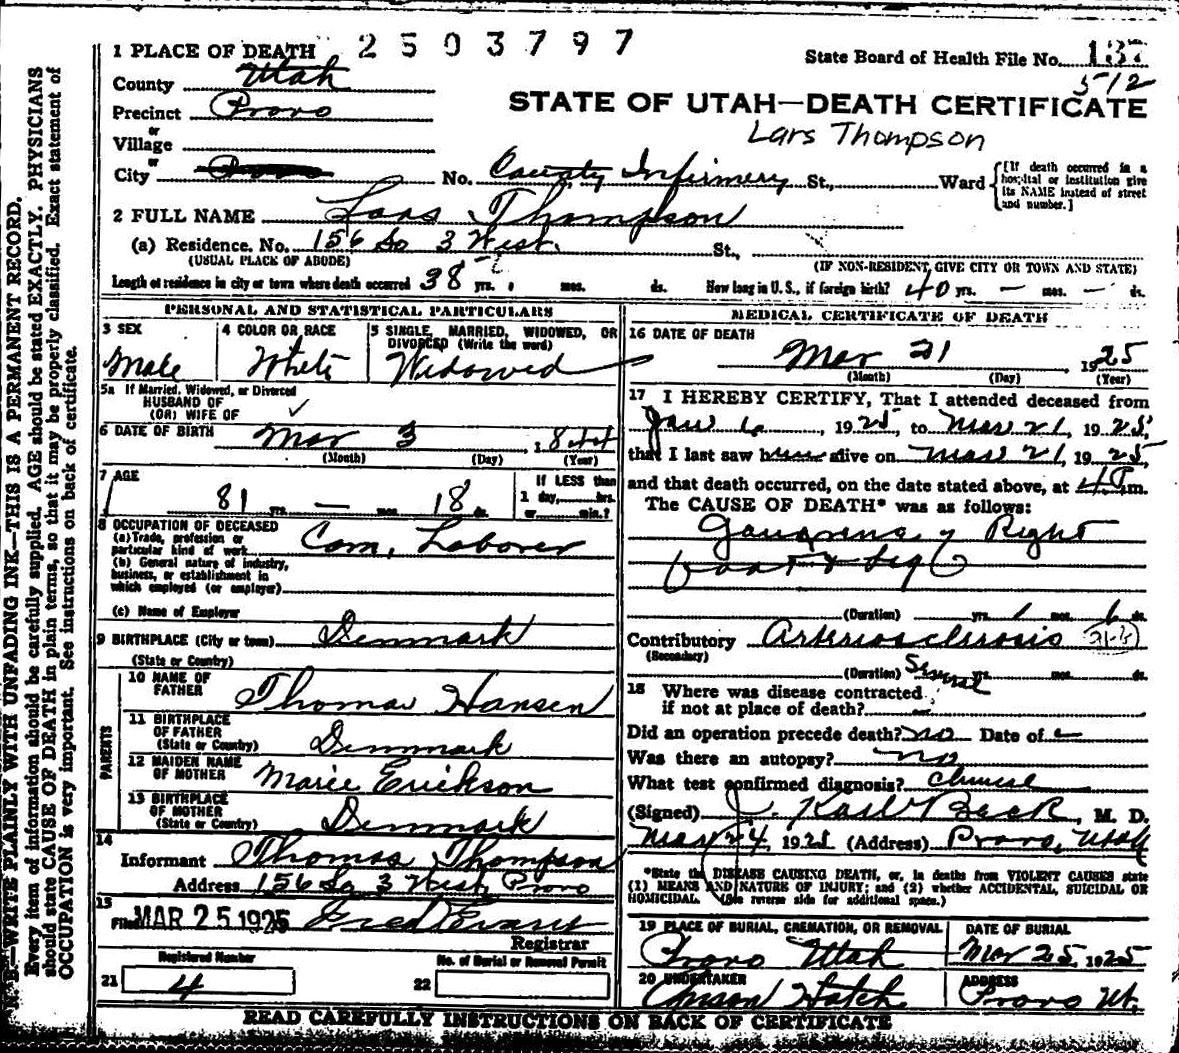 2 5 0 3 7 9 7
1 PLACE OF DEATH
State Board of Health File No. 137
512
County Utah
Precinct Provo
STATE OF UTAH—DEATH CERTIFICATE
Lars Thompson
or
Village
or
City Provo No. County Infirmery St., Ward
[If death occurred in a
hospital or institution give
its NAME instead of street
and number.]
2 FULL NAME Lars Thompson
(a) Residence. No. 156 So 3 West. St.,
(USUAL PLACE OF ABODE)
(IF NON-RESIDENT GIVE CITY OR TOWN AND STATE)
Length of residence in city or town where death occurred 38 yrs. mos. ds. How long in U. S., if foreign birth? 40 yrs. — mos. — ds.
PERSONAL AND STATISTICAL PARTICULARS
3 SEX
Male
4 COLOR OR RACE
White
5 SINGLE, MARRIED, WIDOWED, OR
DIVORCED (Write the word)
Widowed
5a If Married, Widowed, or Divorced
HUSBAND OF
(OR) WIFE OF
6 DATE OF BIRTH Mar 3, 1844
(Month) (Day) (Year)
7 AGE
81 yrs. — mos. 18 ds.
If LESS than
1 day, hrs.
or min.?
8 OCCUPATION OF DECEASED
(a) Trade, profession or
particular kind of work Com. Laborer
(b) General nature of industry,
business, or establishment in
which employed (or employer)
(c) Name of Employer
9 BIRTHPLACE (City or town) Denmark
(State or Country)
PARENTS
10 NAME OF
FATHER Thomas Hansen
11 BIRTHPLACE
OF FATHER
(State or Country) Denmark
12 MAIDEN NAME
OF MOTHER Marie Erickson
13 BIRTHPLACE
OF MOTHER
(State or Country) Denmark
14
Informant Thomas Thompson
Address 156 So 3 West Provo
15
Filed MAR 25 1925 Fred Evans
Registrar
Registered Number
21 4
No. of Burial or Removal Permit
22
MEDICAL CERTIFICATE OF DEATH
16 DATE OF DEATH
Mar 21 1925
(Month) (Day) (Year)
17 I HEREBY CERTIFY, That I attended deceased from
Jan 6, 1925, to Mar 21, 1925,
that I last saw him alive on Mar 21, 1925,
and that death occurred, on the date stated above, at 4 P m.
The CAUSE OF DEATH* was as follows:
Gangrene of Right
foot & leg
(Duration) yrs. 1 mos. 6 ds.
Contributory Arteriosclerosis
(Secondary)
(Duration) Several yrs. mos. ds.
18 Where was disease contracted
if not at place of death?
Did an operation precede death? no Date of
Was there an autopsy? no
What test confirmed diagnosis? Clinical
(Signed) J. Karl Beck, M. D.
Mar 24, 1925 (Address) Provo, Utah
*State the DISEASE CAUSING DEATH, or, in deaths from VIOLENT CAUSES state
(1) MEANS AND NATURE OF INJURY; and (2) whether ACCIDENTAL, SUICIDAL OR
HOMICIDAL. (See reverse side for additional space.)
19 PLACE OF BURIAL, CREMATION, OR REMOVAL
Provo Utah
DATE OF BURIAL
Mar 25, 1925
20 UNDERTAKER
Anson Hatch
ADDRESS
Provo Ut.
READ CAREFULLY INSTRUCTIONS ON BACK OF CERTIFICATE
N. B.—WRITE PLAINLY WITH UNFADING INK—THIS IS A PERMANENT RECORD.
Every item of information should be carefully supplied. AGE should be stated EXACTLY. PHYSICIANS
should state CAUSE OF DEATH in plain terms, so that it may be properly classified. Exact statement of
OCCUPATION is very important. See instructions on back of certificate.